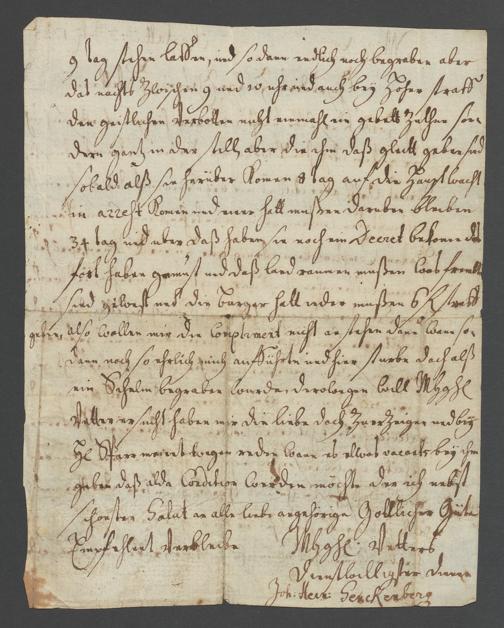 9 tag stehen lassen, und so dann endlich noch begraben aber
daß nachts zwischen 9 und 10 uhr und auch bey hoher straff
den geistlichen verbotten nicht einmahl ein gebett zu thun son
dern gantz in der still, aber die ihm daß glait geben sind
sobald alß sie herüber komen 8 tag auf die Haupt wacht
in arrest komen und einer hatt mußen darüben bleiben
34 tag und aber daß haben sie noch ein Decret bekomen daß
fort haben gemüst und daß land raumen mußen
sind geweßt und die Burger hatt jeder mußen 6 straff
geben, also wollen mir die Compliment nicht anstehen dann wann so
dann noch so ehrlich mich aufführte und hier sturbe doch alß
ein Schelm begraben wurde, derowegen will MhghE
Vetter ersucht haben mir die liebe doch zu erzeigen und bey
HE Pfarr meinetwegen reden wann es etwas vacants bey ihm
geben daß alda Condition werden möchte der ich nebst
schönsten Salut an alle liebe angehörige Göttlicher Güte
Empfehlent Verbleibe MhghE: Vetters
Dienstwilligster Diener
Joh: Henr: Senckenberg